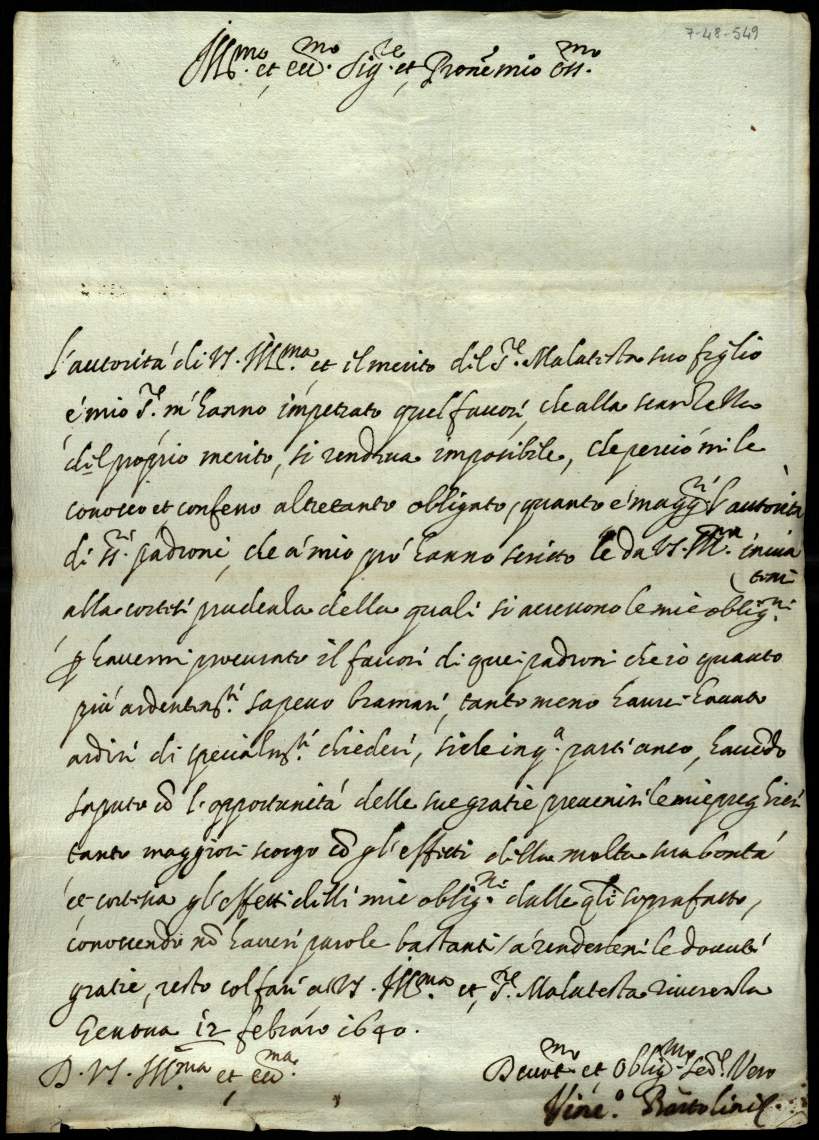 7-48-549
Ill.mo et ecc.mo Sig.re et Prone mio oss.mo
L'autorità di V.S. Ill.ma et il merito del S.re Malatesta suo figlio
e mio S.re m'hanno impetrato quel favore, che alla scarsezza
del proprio merito, si rendeva impossibile, che perciò mi le
conosco et confesso altretanto obligato, quanto è magg.re l'autorità
di ss.ri padroni, che a mio prò hanno scritto le da V.S. Ill.ma inuia
temi
alla cortese prudenza della quale si accrescono le mie oblig.ni
p havermi procurato il favore di quei padroni che io quanto
più ardentem.te sapevo bramare, tanto meno haurei hauuto
ardire di specialm.te chiedere, si che in q.a parte anco, hauedo
saputo cō l'opportunità delle sue gratie prevenire le mie preghiere
tanto maggiori scorgo cō gl'effetti della molta sua bontà
et cortesia gl'effetti delle mie oblig.ni dalle qli soprafatto,
conoscendo nō havere parole bastanti à rendergeni le dovute
gratie, resto col fare a V.S. Ill.ma et S.re Malatesta riverenza
Genova 12 febraro 1640.
D. V.S. Ill.ma et ecc.ma
Devot.mo et Oblig.mo Ser.re Vero
Vinc.o Bartolini